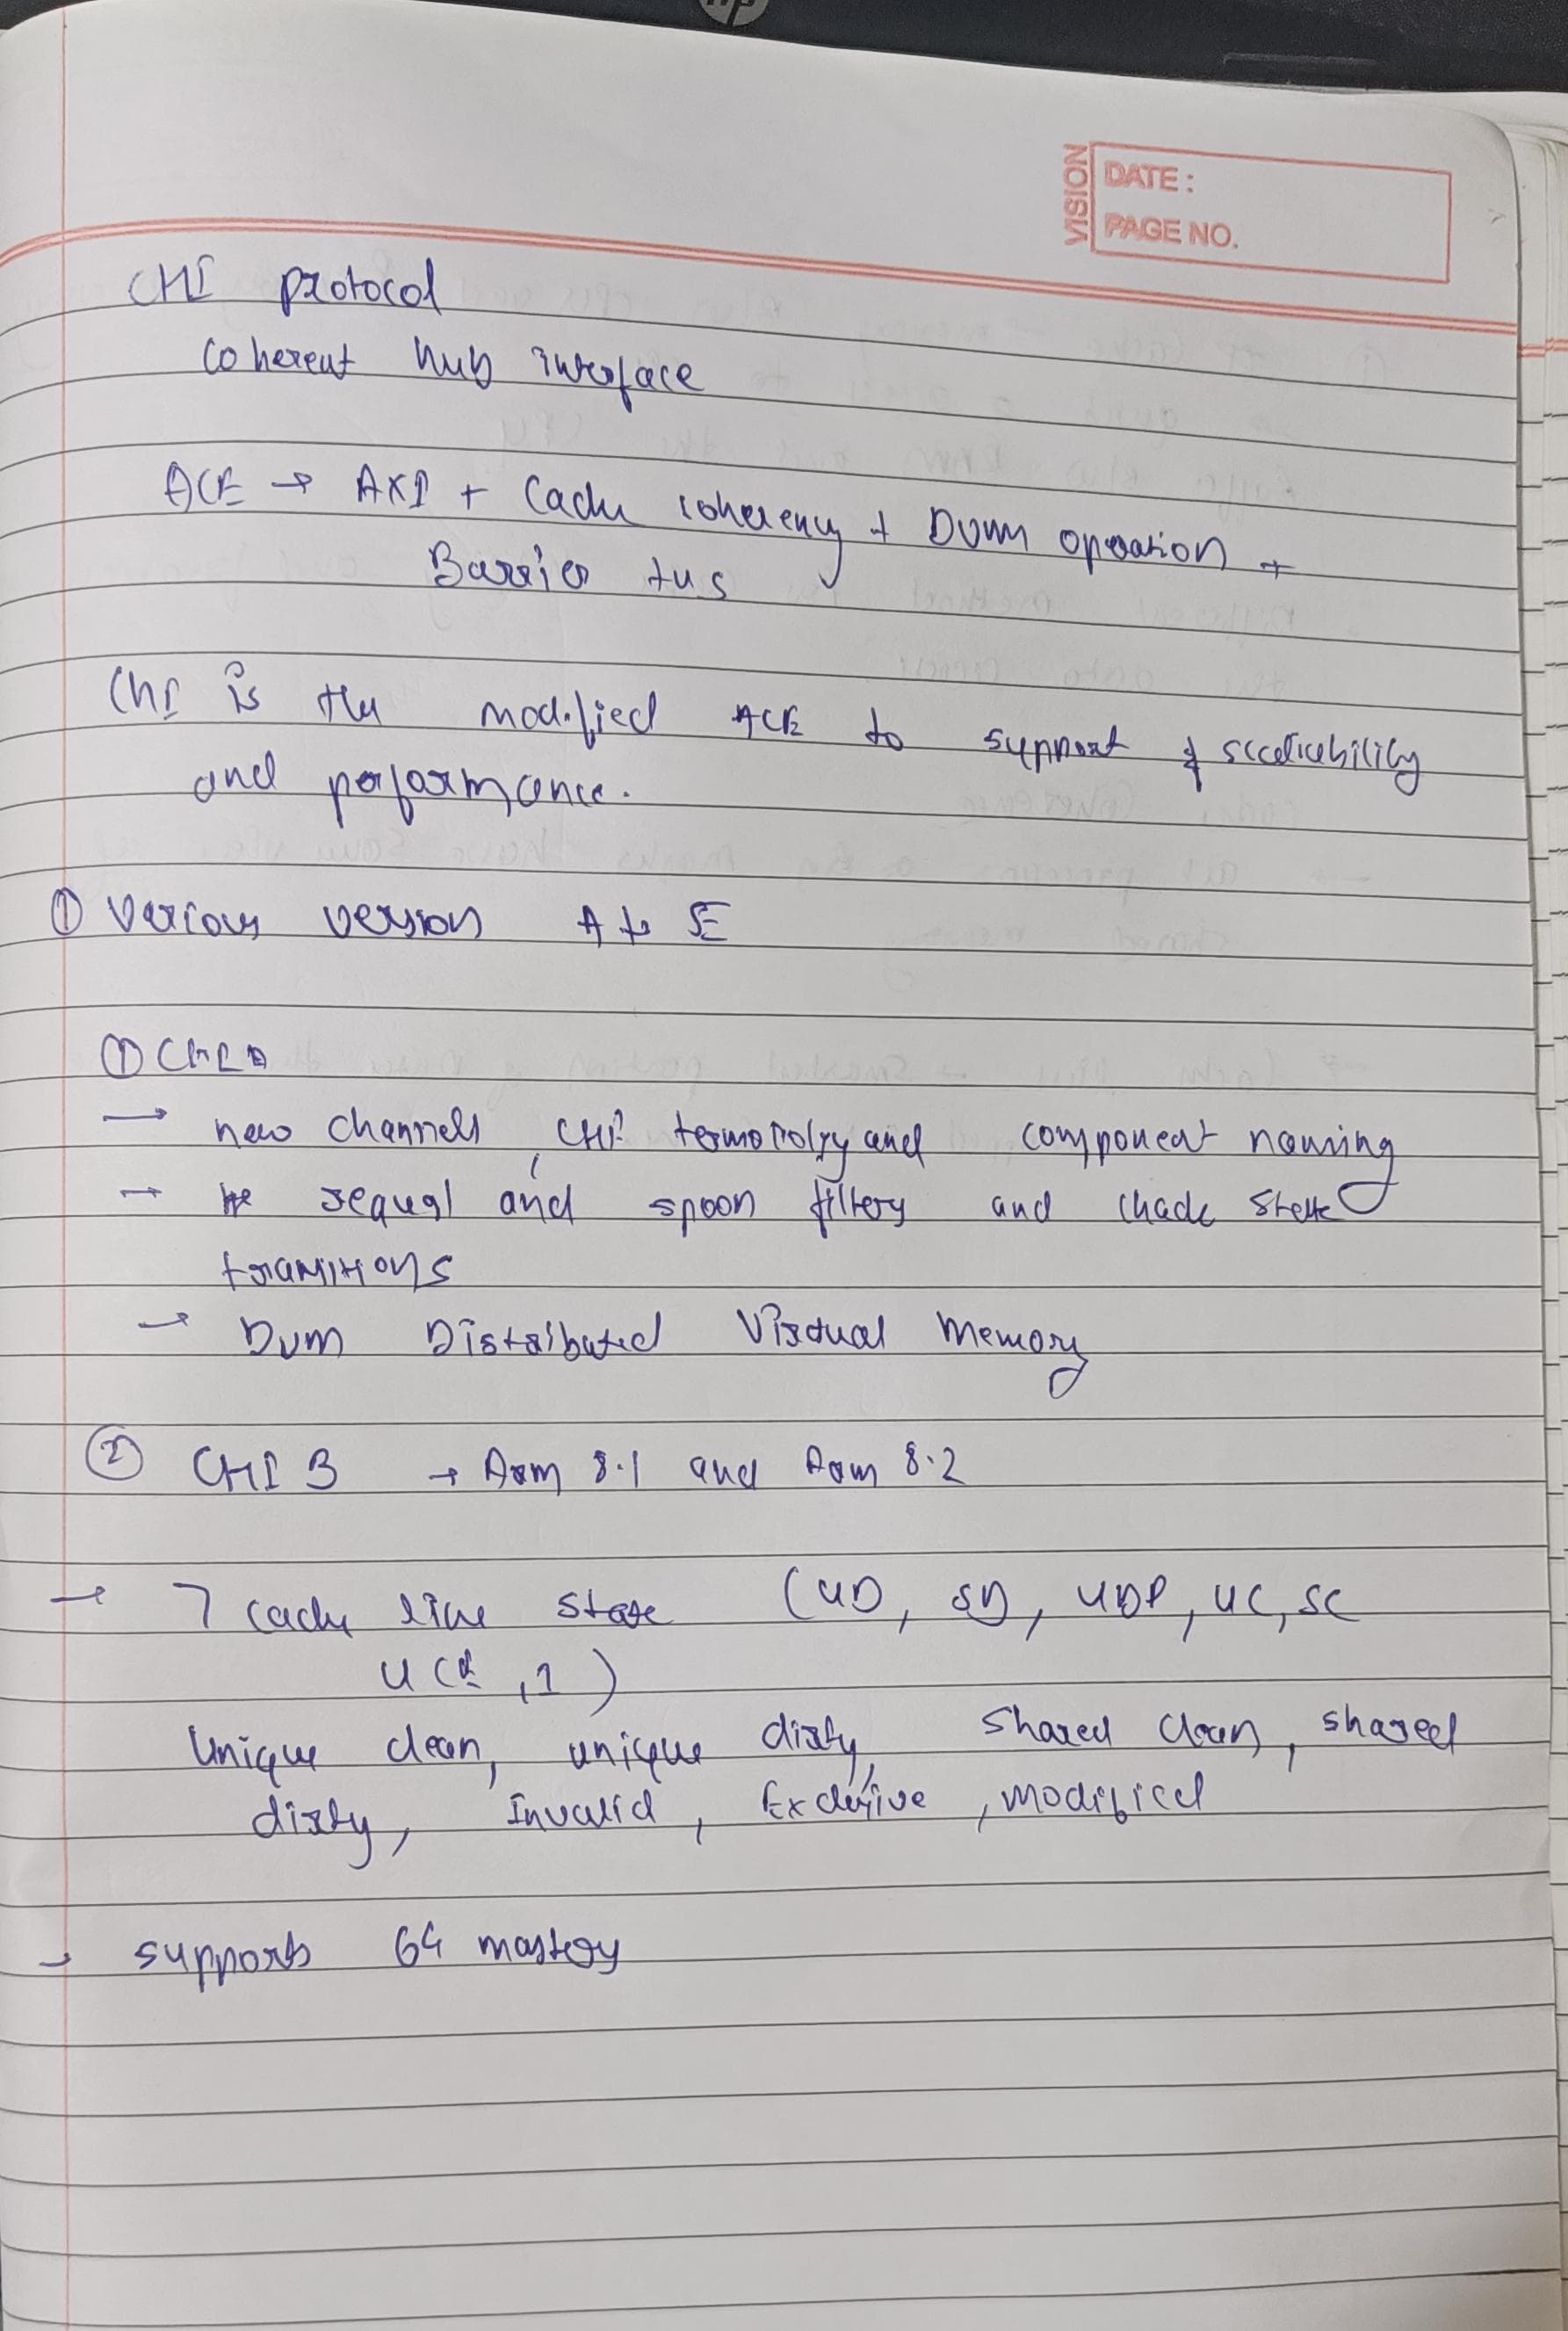 hp
VISION
DATE :
PAGE NO.
CHI protocol
Coherent hub interface
ACE → AXI + Cache coherency + DVM operation +
Barrier txs
CHI is the modified ACE to support & scalability
and performance.
① Various version A to E
① CHI A
→ new channels, CHI and component naming
→ and spoon filters and state
transitions
→ DVM Distributed Virtual Memory
② CHI B → Arm 8.1 and Arm 8.2
→ 7 cache line state (UD, SD, UDP, UC, SC
UCE, I)
Unique clean, unique dirty, Shared clean, shared
dirty, Invalid, Exclusive, modified
→ supports 64 masters